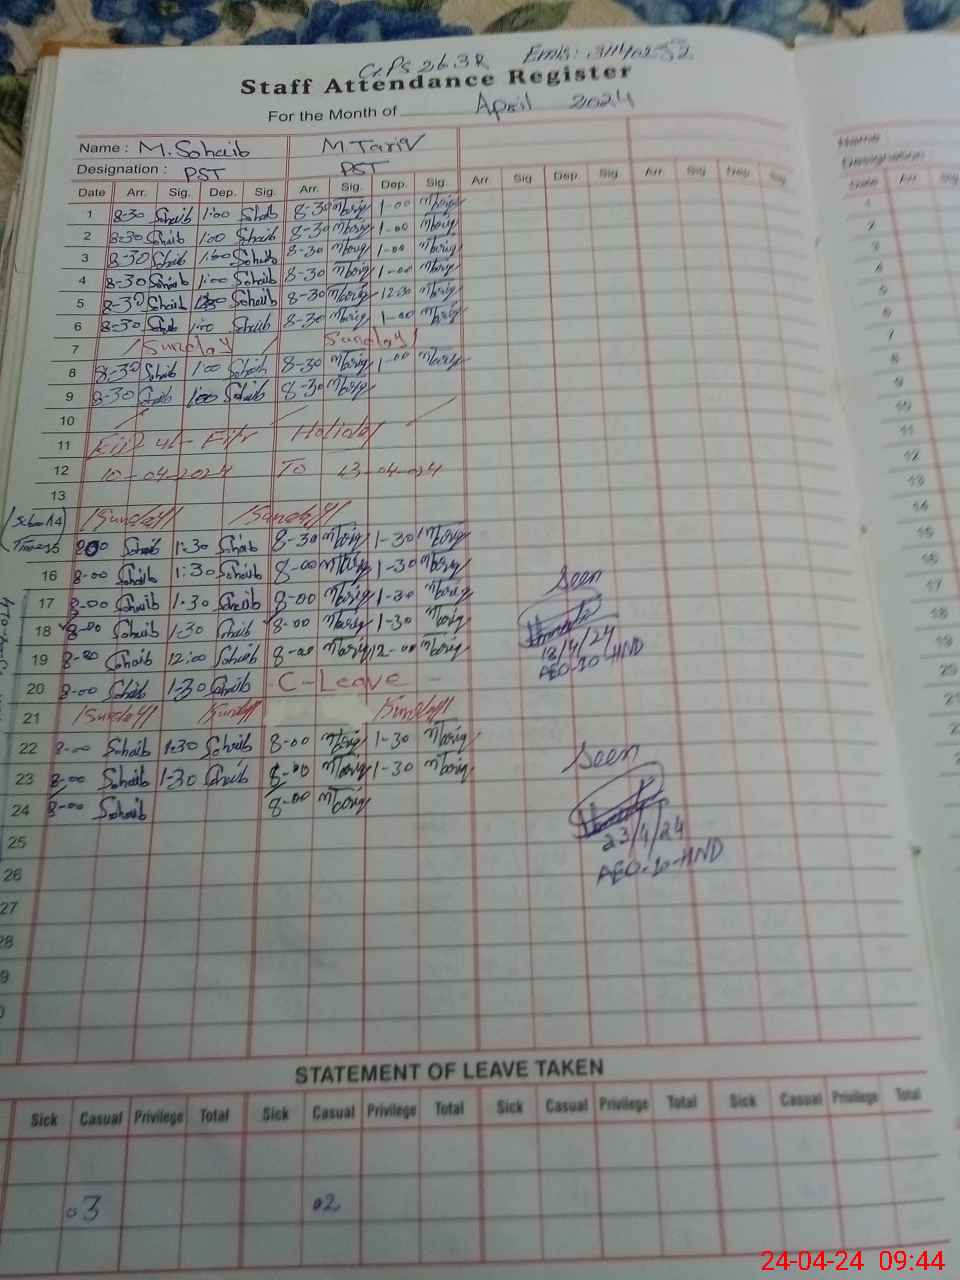 GPS 26.3R Emis: 31140252
Staff Attendance Register
For the Month of April 2024
Name : M. Sohaib M Tariq
Designation : PST PST
Date Arr. Sig. Dep. Sig. Arr. Sig. Dep. Sig. Arr. Sig Dep. Sig. Arr. Sig.
1 8-30 Sohaib 1:00 Sohaib 8-30 MTariq 1-00 MTariq
2 8-30 Sohaib 1:00 Sohaib 8-30 MTariq 1-00 MTariq
3 8-30 Sohaib 1:00 Sohaib 8-30 MTariq 1-00 MTariq
4 8-30 Sohaib 1:00 Sohaib 8-30 MTariq 1-00 MTariq
5 8-30 Sohaib Sohaib 8-30 MTariq 12:30 MTariq
6 8-30 Sohaib 1:00 Sohaib 8-30 MTariq 1-00 MTariq
7 Sunday Sunday
8 8-30 Sohaib 1:00 Sohaib 8-30 MTariq 1-00 MTariq
9 8-30 Sohaib 1:00 Sohaib 8-30 MTariq
10
11 Eid ul-Fitr Holiday
12 10-04-2024 To 13-04-024
13
(School 14 Sunday Sunday
Times) 15 8:00 Sohaib 1:30 Sohaib 8-30 MTariq 1-30 MTariq
16 8-00 Sohaib 1:30 Sohaib 8-00 MTariq 1-30 MTariq
17 8-00 Sohaib 1-30 Sohaib 8-00 MTariq 1-30 MTariq
Seen
18 8-00 Sohaib 1-30 Sohaib 8-00 MTariq 1-30 MTariq
18/4/24
19 8-00 Sohaib 12:00 Sohaib 8-00 MTariq 12-00 MTariq
AEO-10-HND
20 8-00 Sohaib 1-30 Sohaib C-Leave
21 Sunday Sunday Sunday
22 8-00 Sohaib 1:30 Sohaib 8-00 MTariq 1-30 MTariq
Seen
23 8-00 Sohaib 1-30 Sohaib 8-00 MTariq 1-30 MTariq
24 8-00 Sohaib 8-00 MTariq
23/4/24
25
AEO-10-HND
26
27
28
9
STATEMENT OF LEAVE TAKEN
Sick Casual Privilege Total Sick Casual Privilege Total Sick Casual Privilege Total Sick Casual Privilege Total
03 02
24-04-24 09:44